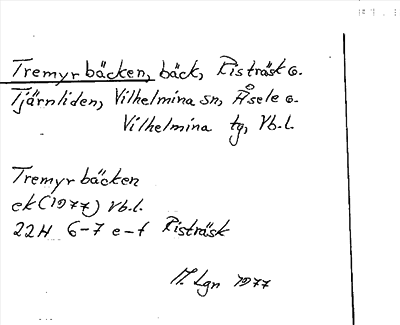 Tremyrbäcken, bäck, Risträsk o.
Tjärnliden, Vilhelmina sn, Åsele o.
Vilhelmina tg, Vb.l.
Tremyrbäcken
ek (1977) Vb.l.
22H 6-7 e-f Risträsk
Lgn 1977